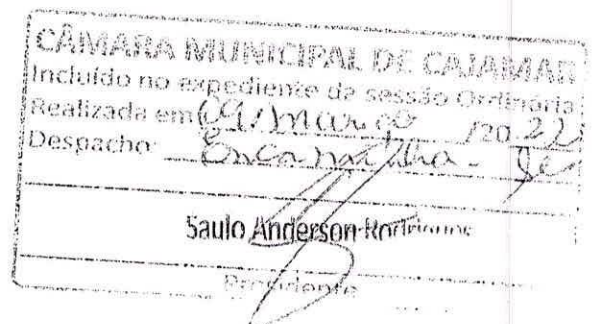 CÂMARA MUNICIPAL DE CAJAMAR
Incluído no expediente da sessão Ordinária
Realizada em 09/março /2022
Despacho: Encaminha-se
Saulo Anderson Rodrigues
Presidente